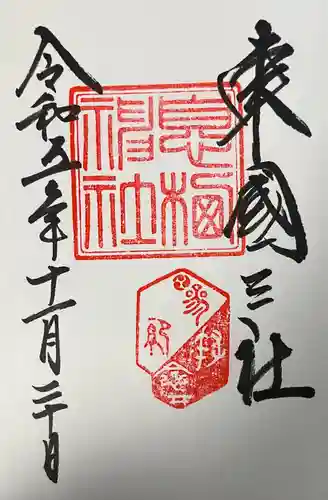 東國三社
息栖神社
令和五年十一月二十日